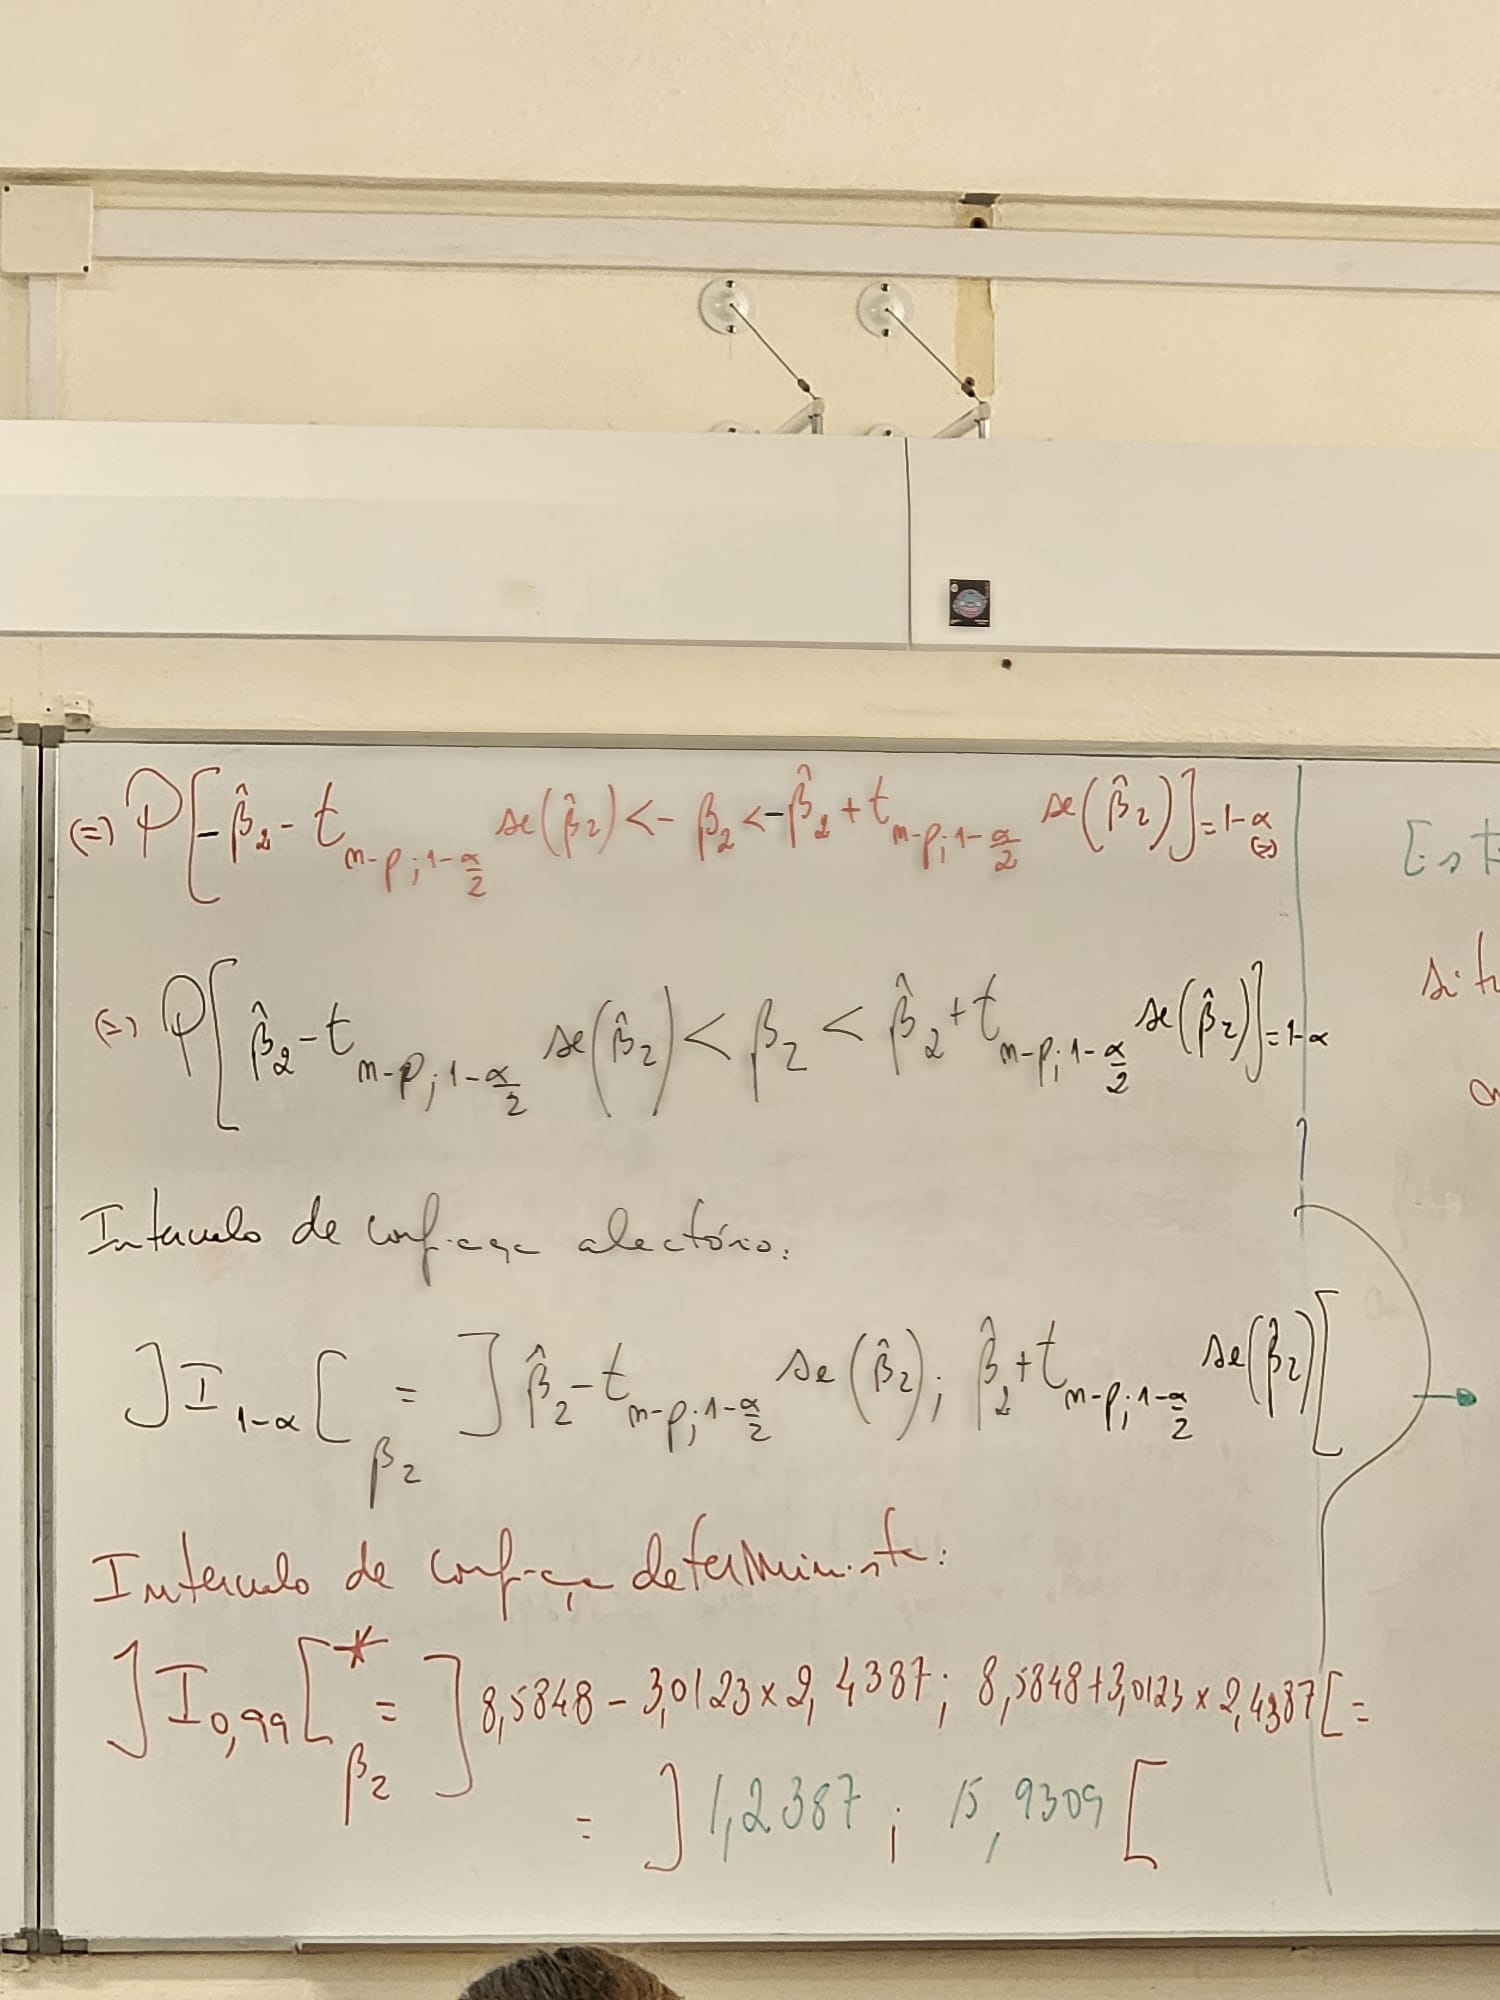 (=) P[-β̂₂ - t_{n-p; 1-α/2} se(β̂₂) < -β₂ < -β̂₂ + t_{n-p; 1-α/2} se(β̂₂)] = 1-α (=)
(=) P[β̂₂ - t_{n-p; 1-α/2} se(β̂₂) < β₂ < β̂₂ + t_{n-p; 1-α/2} se(β̂₂)] = 1-α
Intervalo de confiança aleatório:
]I_{1-α}[_{β₂} = ]β̂₂ - t_{n-p; 1-α/2} se(β̂₂); β̂₂ + t_{n-p; 1-α/2} se(β̂₂)[
Intervalo de confiança determinista:
]I_{0,99}[*_{β₂} = ]8,5848 - 3,0123 × 2,4387; 8,5848 + 3,0123 × 2,4387[ =
= ]1,2387; 15,9309[
Est